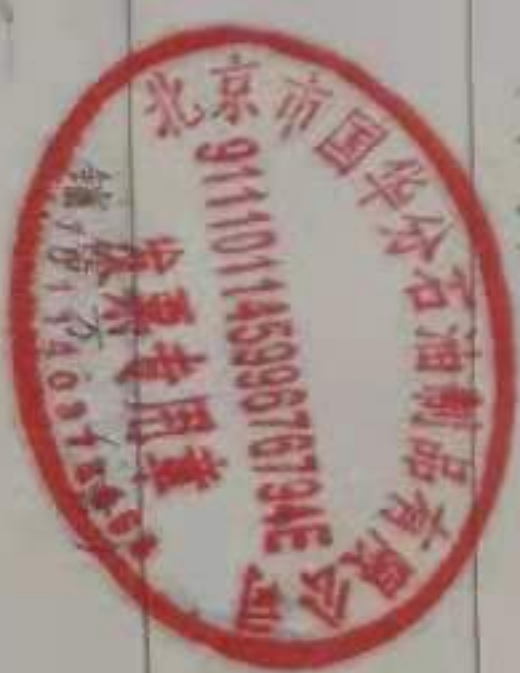 北京市国华分石油制品有限公司
91110114599676794E
发票专用章